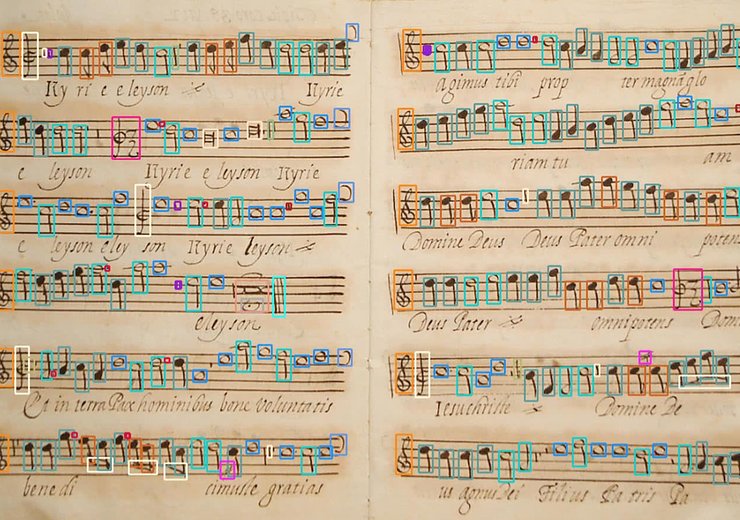 Ky ri e e leyson Kyrie
e leyson Kyrie e leyson Kyrie
e leyson eley son Kyrie leyson
eleyson
Et in terra Pax hominibus bone voluntatis
bene di cimuste gratias
agimus tibi prop ter magnã glo
riam tu am
Domine Deus Deus Pater omni poten
Deus Pater omnipotens Dom
Iesu christe Domine De
us agnus Dei Filius Pa tris Pa